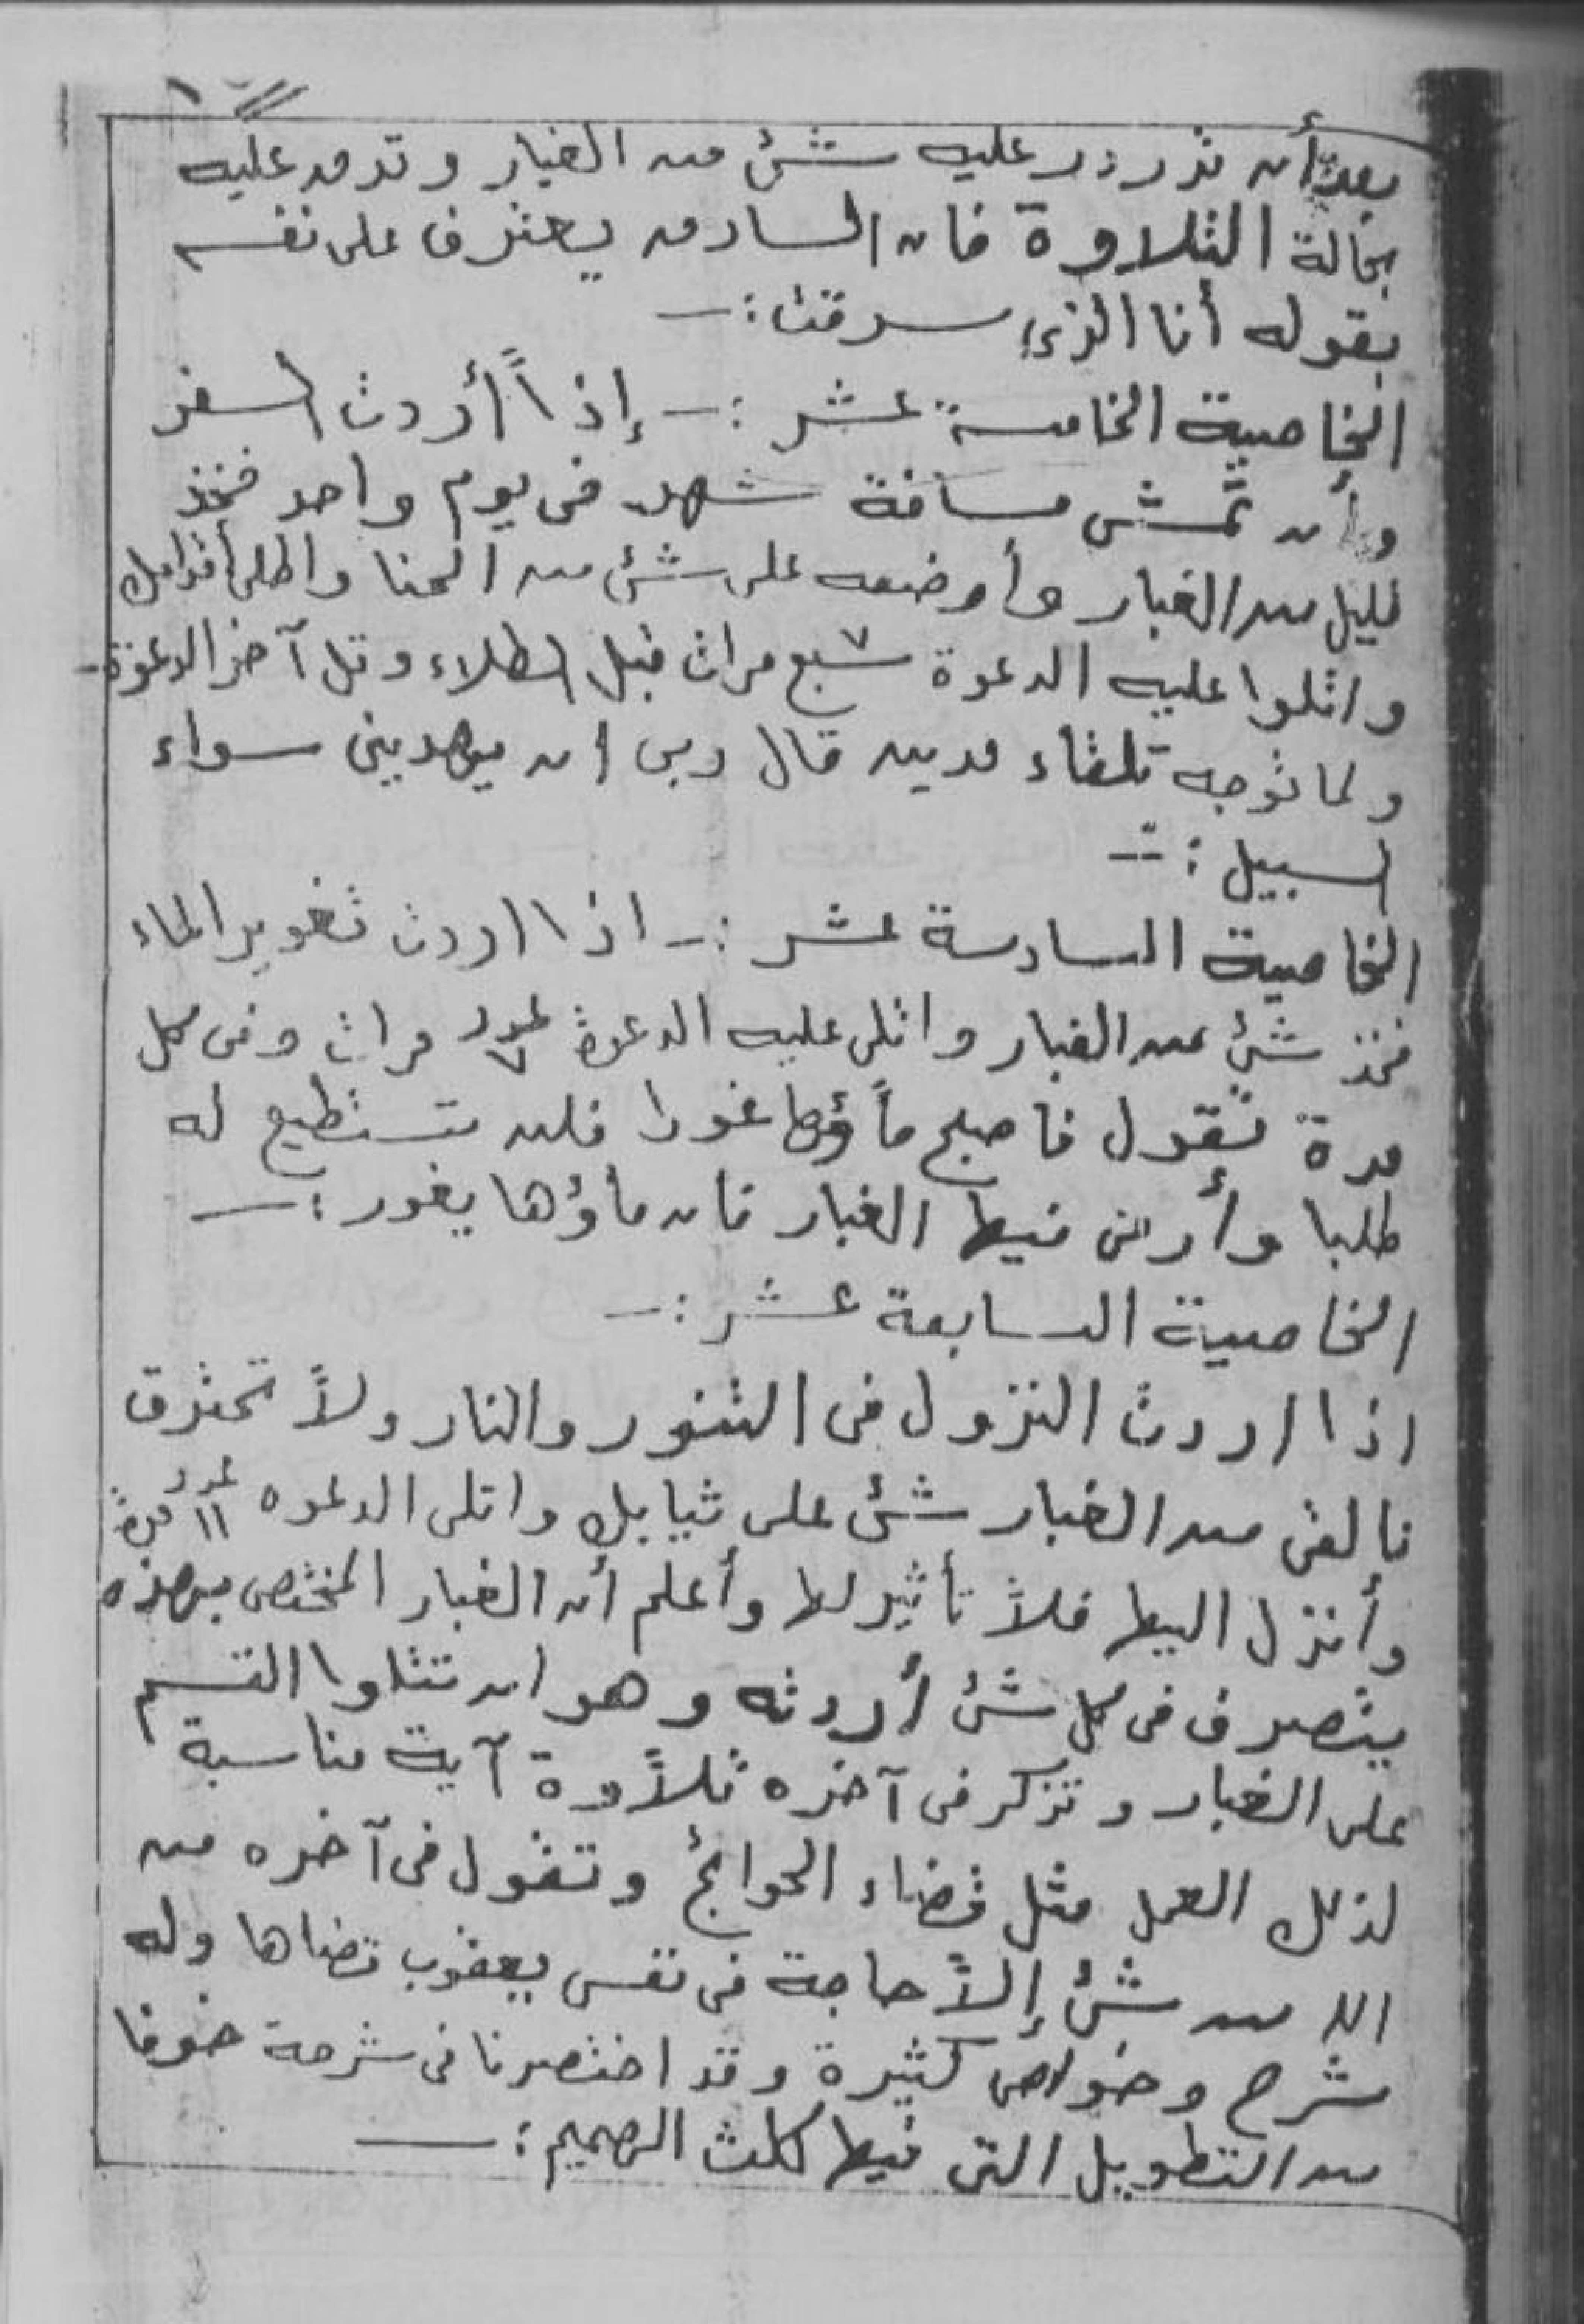 بعد أن تذردر عليه شئ من الغبار وتدمد عليه
بحالة التلاوة فان السارق يعترف على نفسه
بقوله أنا الذى سرقت :—
الخاصية الخامسة عشر :— إذاً أردت السفر
وأن تمشى مسافة شهر فى يوم واحد فخذ
قليل من الغبار وأوضعه على شئ من الحنا واطلى أقدامك
واتلوا عليه الدعوة سبع ٧ مرات قبل الطلاء وقل آخر الدعوة -
ولما توجه تلقاء مدين قال ربى ان يهدينى سواء
السبيل :—
الخاصية السادسة عشر :— اذا اردت تغوير الماء
فخذ شئ من الغبار واتلى عليه الدعوة عدد ٧ مرات وفى كل
مرة تقول فاصبح ماؤها غورا فلن تستطيع له
طلبا وأرمى فيها الغبار فان ماؤها يغور :—
الخاصية السابعة عشر :—
اذا اردت النزول فى التنور والنار ولاً تحترق
فالقى من الغبار شئ على ثيابك واتلى الدعوه عدد ١١ مرة
وأنزل اليها فلاً تأثير لها وأعلم أن الغبار المختص بهذه
يتصرف فى كل شئ أردته وهو ان تتلوا القسم
على الغبار وتذكر فى آخره تلاًوة آية مناسبة
لذلك العمل مثل قضاء الحوائج وتقول فى آخره من
الله من شئ إلاً حاجة فى نفس يعقوب قضاها وله
شرح وخواص كثيرة وقد اختصرنا فى شرحة خوفا
من التطويل التى فيها كلت الهميم :—